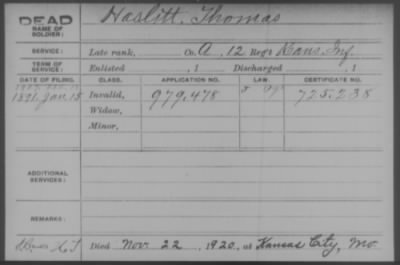 DEAD Haslitt, Thomas
NAME OF
SOLDIER:
SERVICE: Late rank, Co. A, 12 Reg't Kans. Inf.
TERM OF
SERVICE: Enlisted , 1 Discharged , 1
DATE OF FILING. CLASS. APPLICATION NO. LAW. CERTIFICATE NO.
1891. Jan. 15 Invalid, 979,478 725,238
Widow,
Minor,
ADDITIONAL
SERVICES:
REMARKS:
Died Nov. 22, 1920, at Kansas City, Mo.